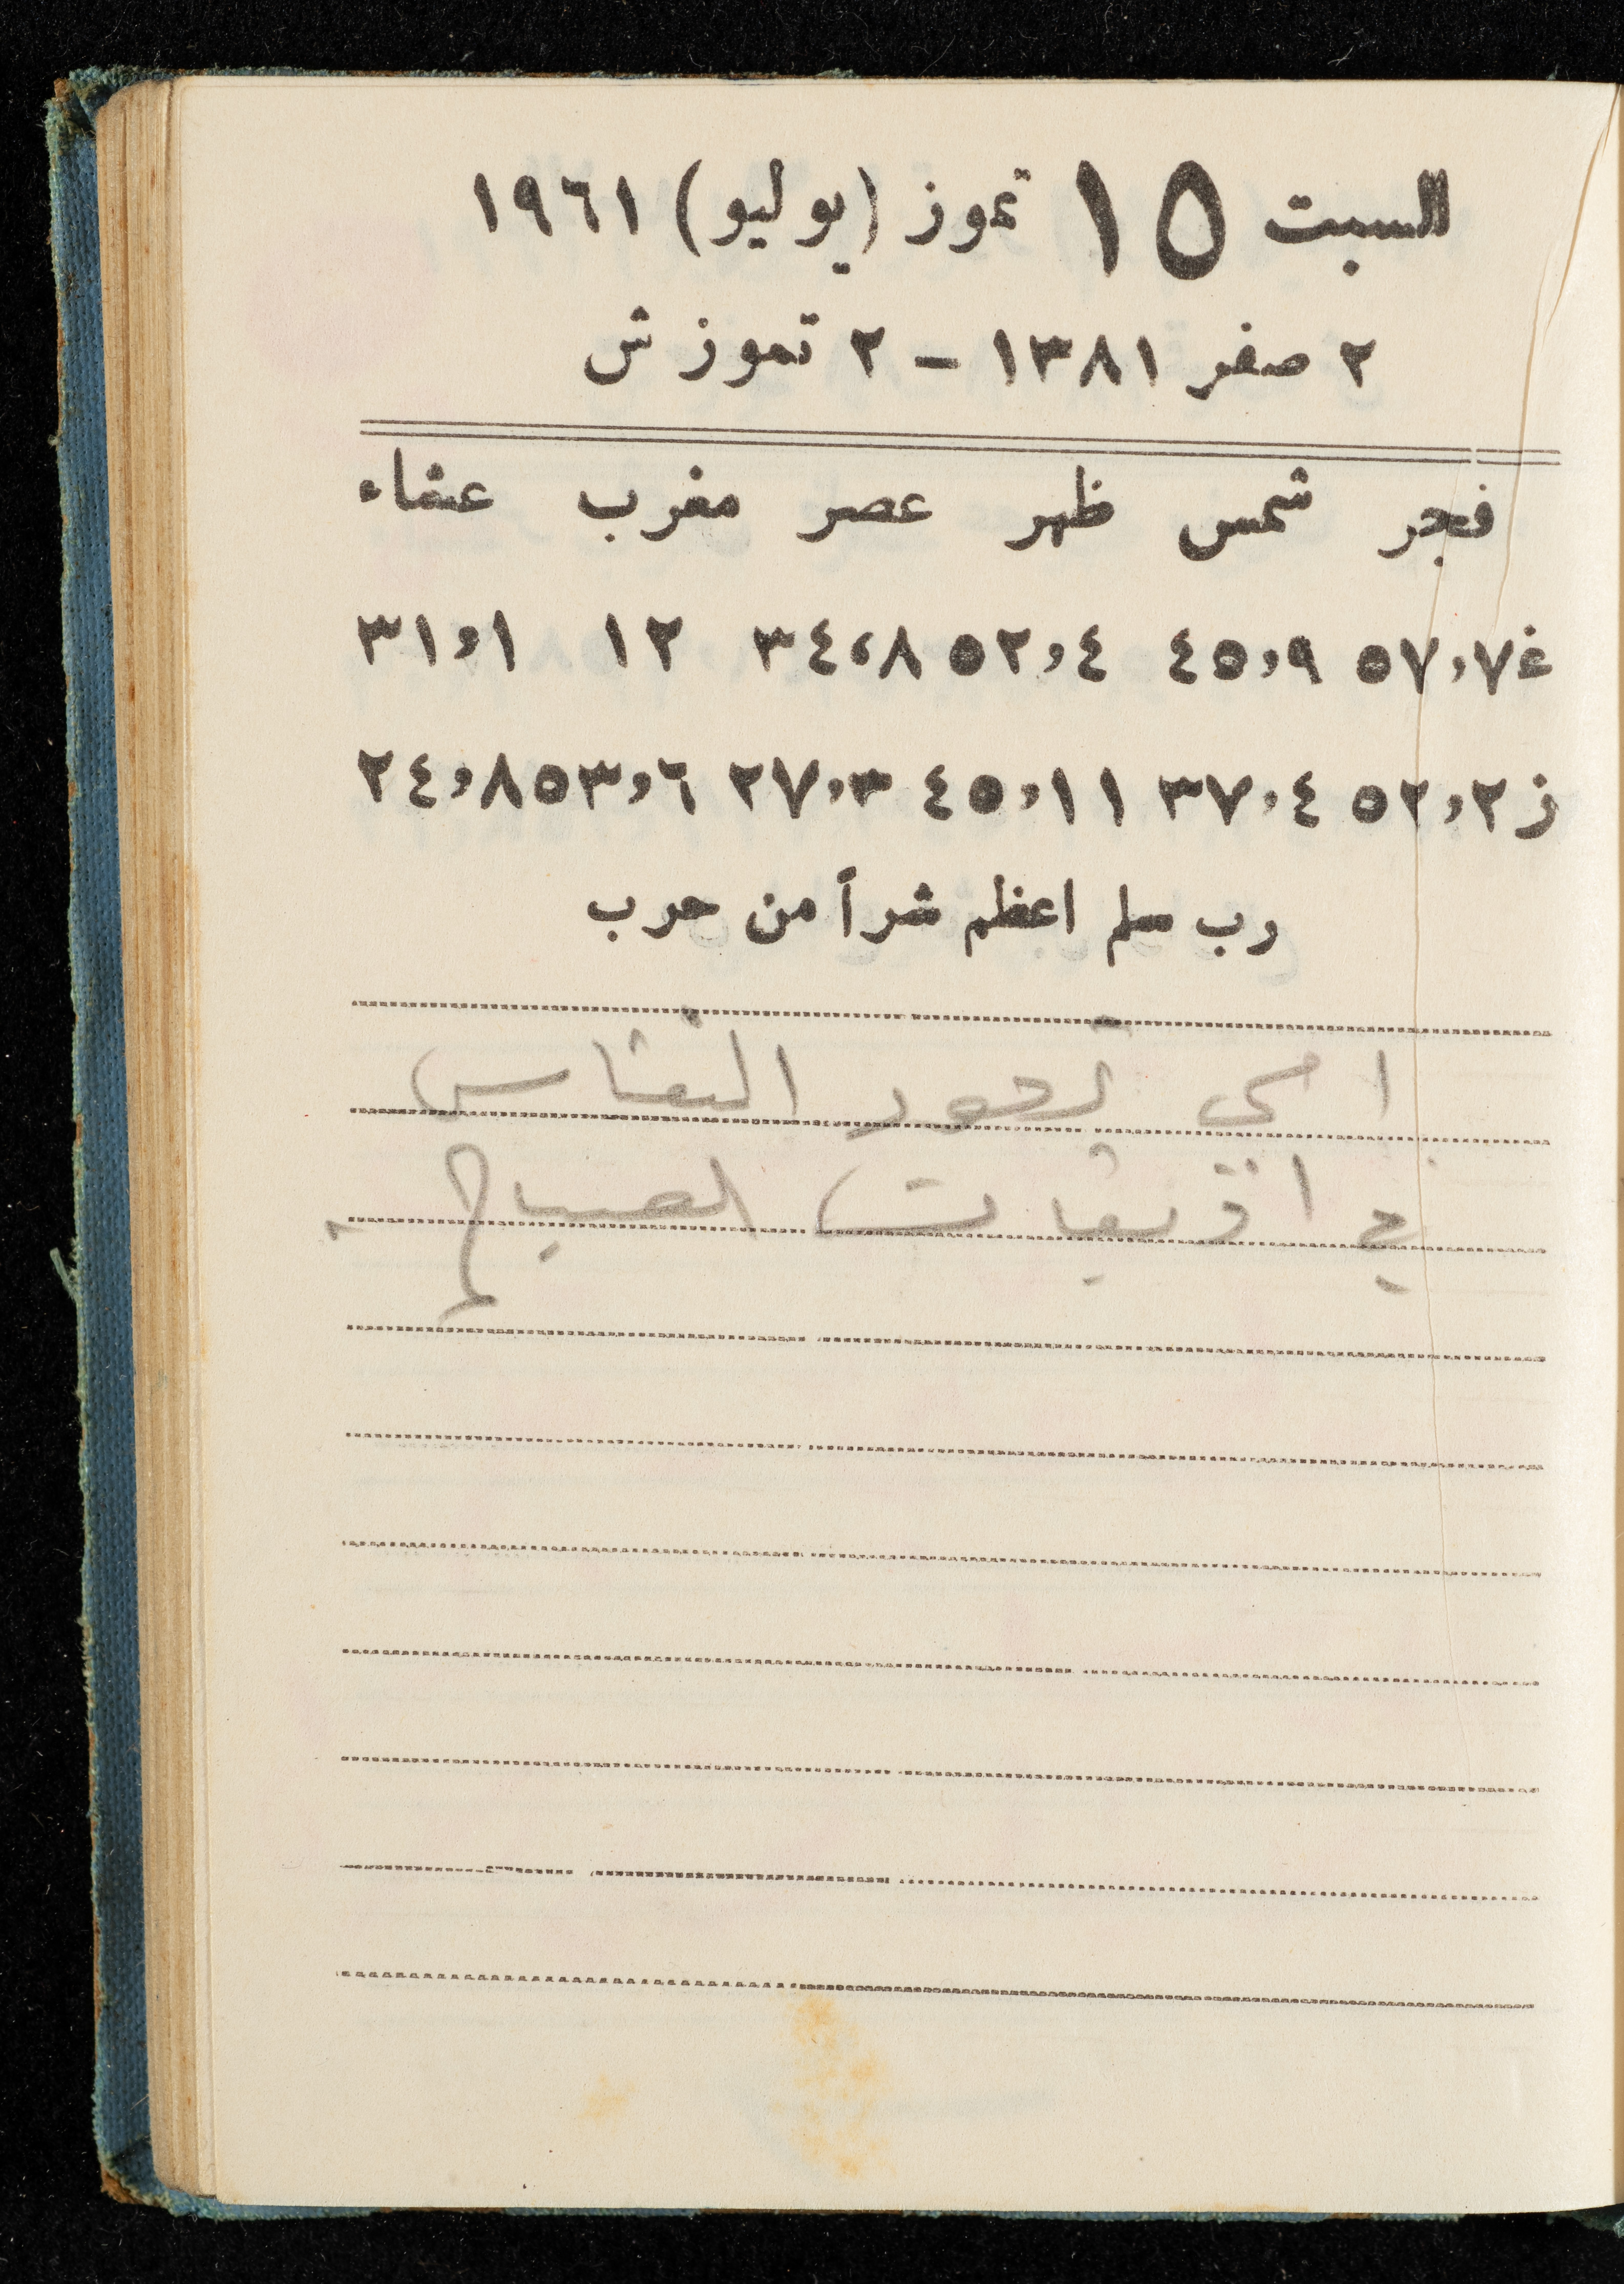 السبت ١٥ تموز (يوليو) ١٩٦١
٢ صفر ١٣٨١ - ٢ تموز ش
فجر شمس ظهر عصر مغرب عشاء
غ ٥٧,٧ ٤٥,٩ ٥٢,٤ ٣٤,٨ ١٢ ٣١,١
ز ٥٢,٢ ٣٧,٤ ٤٥,١١ ٢٧,٣ ٥٣,٦ ٢٤,٨
رب سلم اعظم شراً من حرب
الصباح